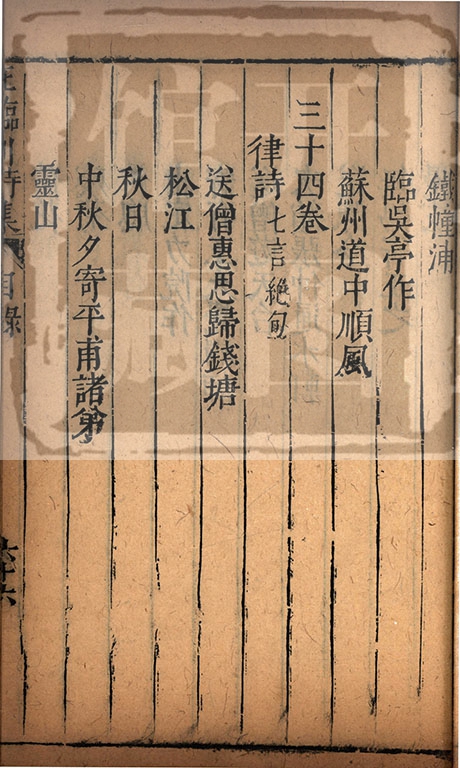 鐵幢浦
臨吳亭作
蘇州道中順風
三十四卷
律詩七言絶句
送僧惠思歸錢塘
松江
秋日
中秋夕寄平甫諸弟
靈山
臨川詩集 目錄 六十六